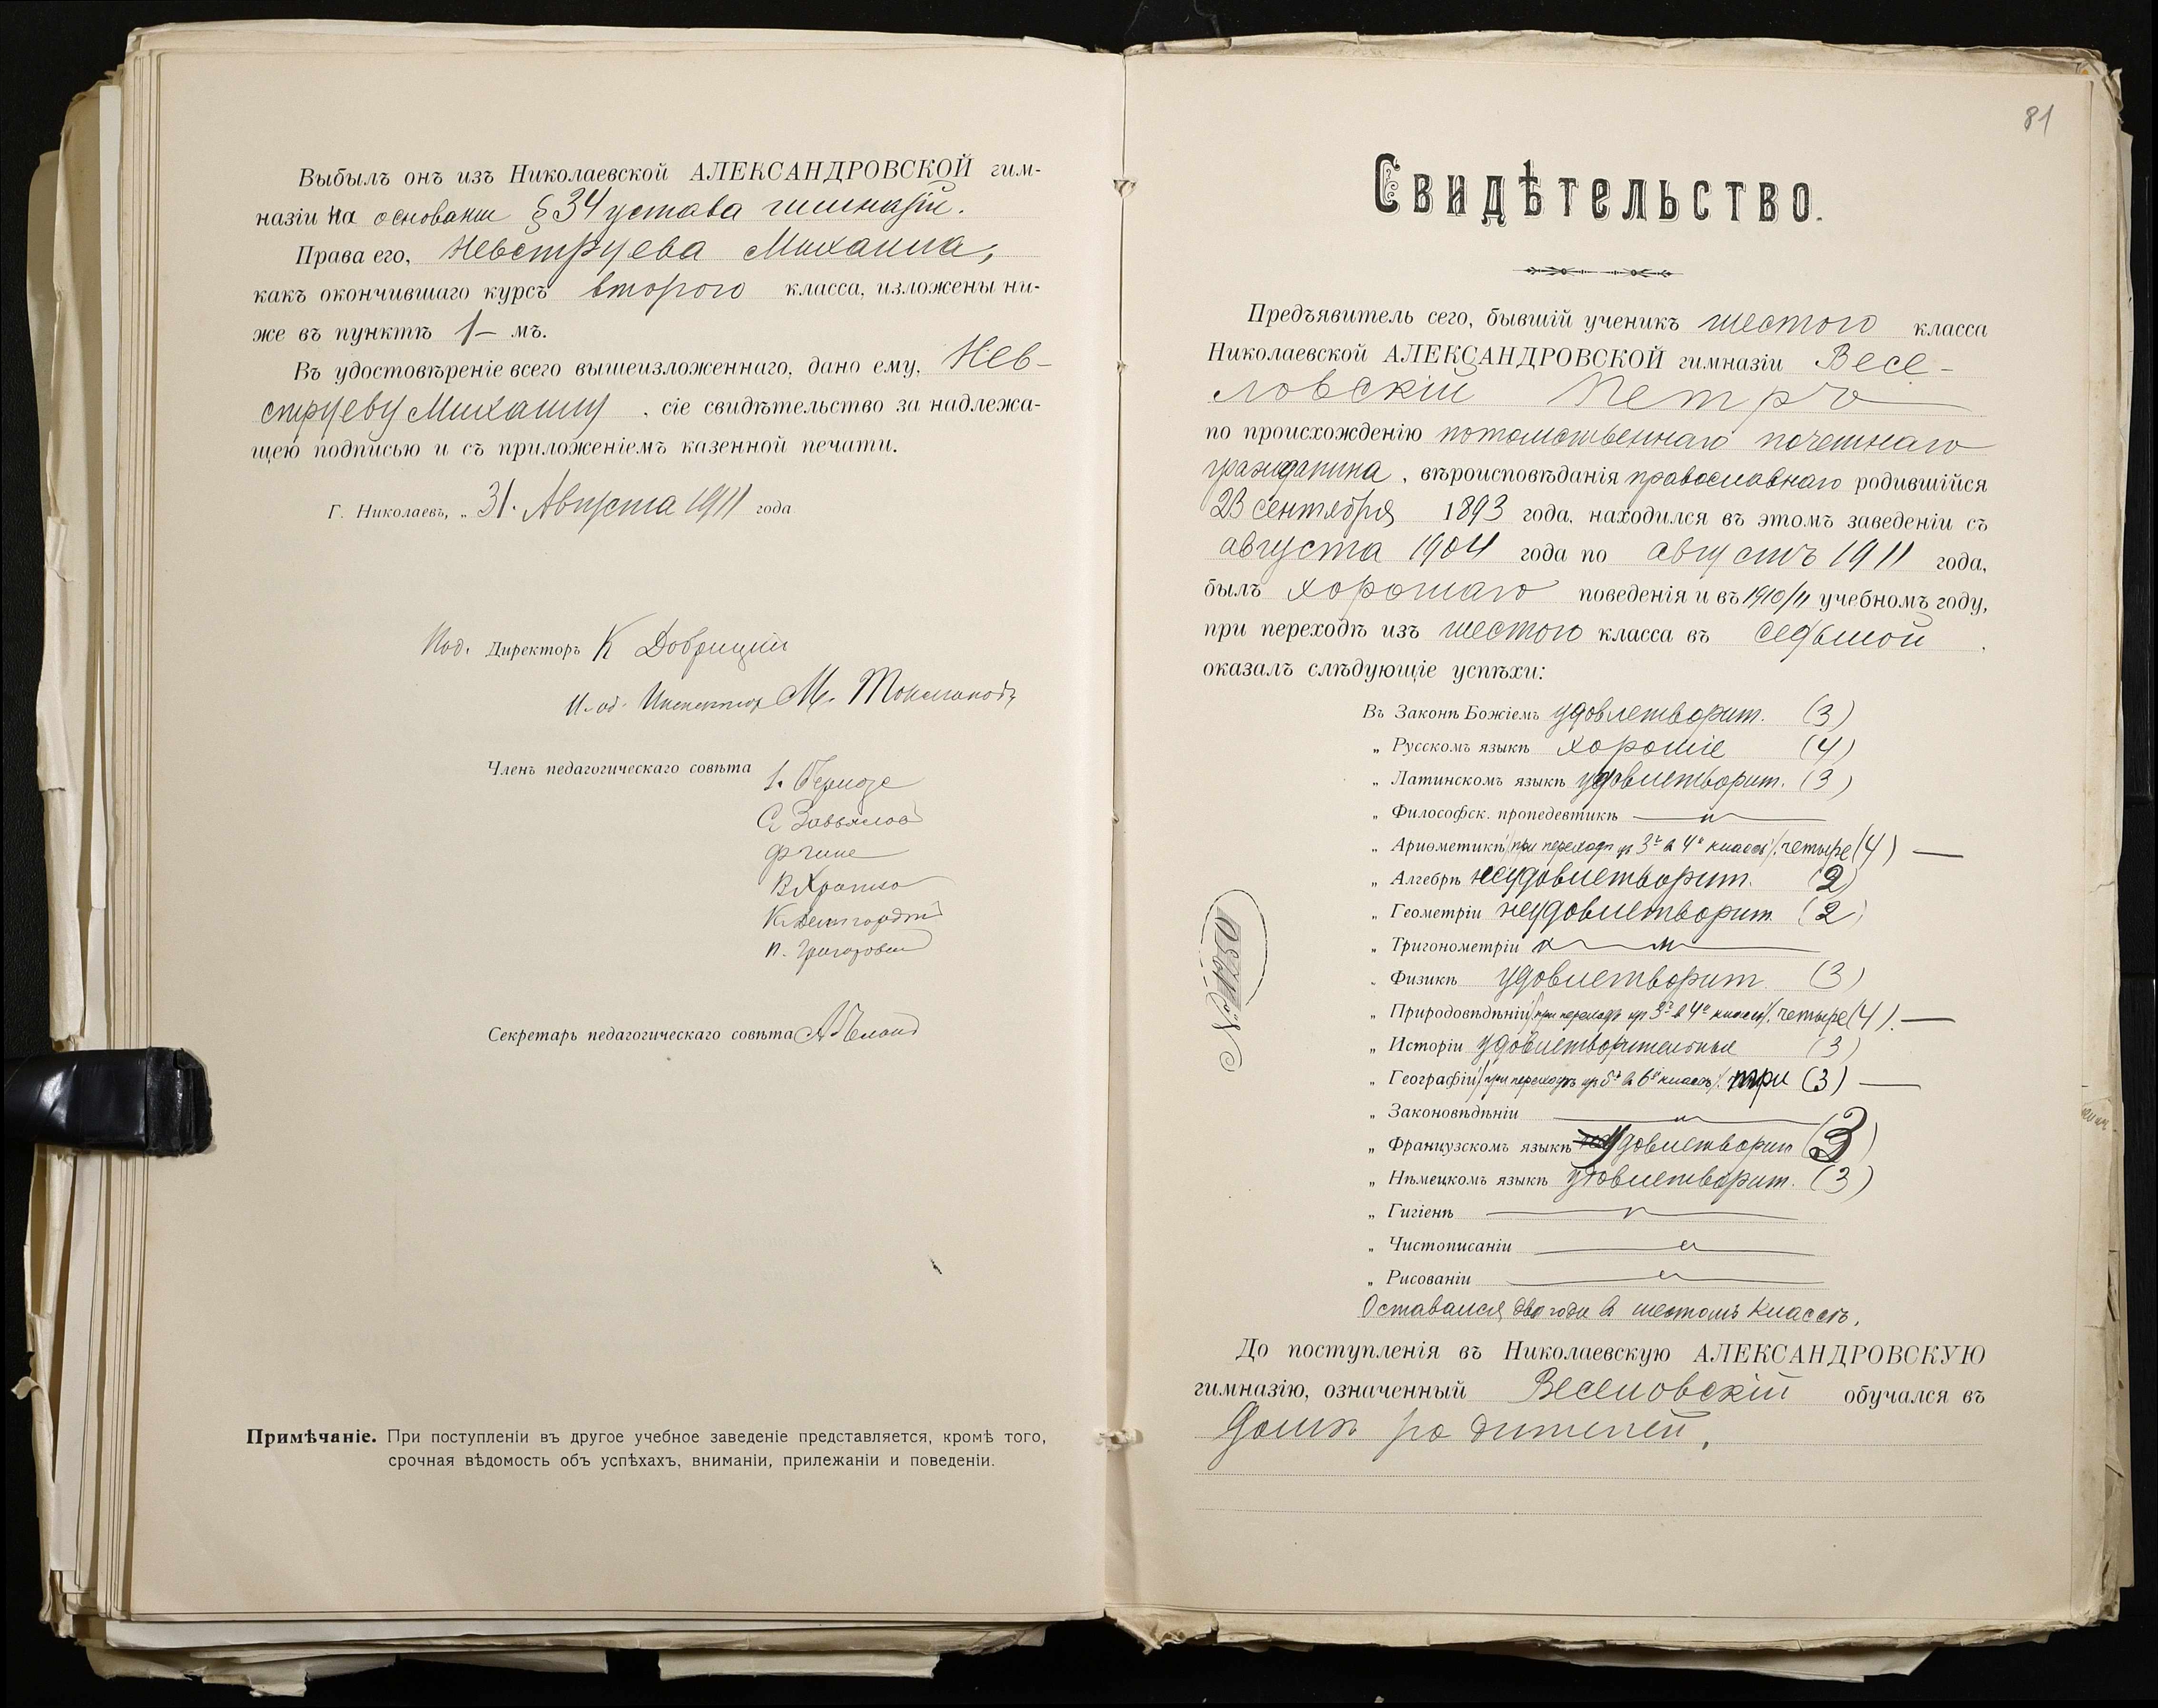 Выбылъ онъ изъ Николаевской АЛЕКСАНДРОВСКОЙ гим-
назіи на основаніи § 34 устава гимназіи.
Права его, Невструева Михаила,
какъ окончившаго курсъ второго класса, изложены ни-
же въ пунктѣ 1 – мъ.
Въ удостовѣреніе всего вышеизложеннаго, дано ему, Нев-
струеву Михаилу, сіе свидѣтельство за надлежа-
щею подписью и съ приложеніемъ казенной печати.
Г. Николаевъ, „ 31. Августа 1911 года
Под. Директоръ К Добрицкій
И. об. Инспектора М.
Членъ педагогическаго совѣта
С. Завьялов
К. Демгородт
П. Григорович
Секретарь педагогическаго совѣта
Примѣчаніе. При поступленіи въ другое учебное заведеніе представляется, кромѣ того,
срочная вѣдомость объ успѣхахъ, вниманіи, прилежаніи и поведеніи.
81
Свидѣтельство.
Предъявитель сего, бывшій ученикъ шестого класса
Николаевской АЛЕКСАНДРОВСКОЙ гимназіи Весе-
ловскій Петръ
по происхожденію потомственнаго почетнаго
гражданина, вѣроисповѣданія православнаго родившійся
23 сентября 1893 года, находился въ этомъ заведеніи съ
августа 1904 года по августъ 1911 года,
былъ хорошаго поведенія и въ 1910/11 учебномъ году,
при переходѣ изъ шестого класса въ седьмой
оказалъ слѣдующіе успѣхи:
Въ Законѣ Божіемъ удовлетворит. (3)
„ Русскомъ языкѣ хорошіе (4)
„ Латинскомъ языкѣ удовлетворит. (3)
„ Философск. пропедевтикѣ —
„ Ариѳметикѣ /при переходѣ из 3го в 4й классъ/. четыре (4) —
„ Алгебрѣ неудовлетворит. (2)
„ Геометріи неудовлетворит. (2)
„ Тригонометріи —
„ Физикѣ удовлетворит. (3)
„ Природовѣдѣніи /при переходѣ из 3го в 4й классъ/. четыре (4). —
„ Исторіи удовлетворительные (3)
„ Географіи /при переходѣ из 5го в 6й классъ/. три (3) —
„ Законовѣдѣніи —
„ Французскомъ языкѣ удовлетворит (3)
„ Нѣмецкомъ языкѣ удовлетворит. (3)
„ Гигіенѣ —
„ Чистописаніи —
„ Рисованіи —
Оставался два года в шестомъ классѣ.
№ 1250
До поступленія въ Николаевскую АЛЕКСАНДРОВСКУЮ
гимназію, означенный Веселовскій обучался въ
домѣ родителей.